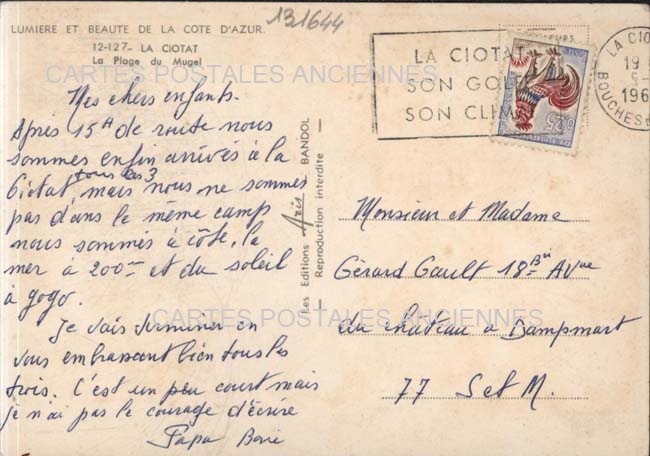 131644
LUMIERE ET BEAUTE DE LA COTE D'AZUR.
12-127- LA CIOTAT
La Plage du Mugel
CARTES POSTALES ANCIENNES
Mes chers enfants.
Après 15H de route nous
sommes enfin arrivés à la
Ciotat tous les 3 mais nous ne sommes
pas dans le même camp
nous sommes à côté, la
mer à 200m et du soleil
à gogo.
Je vais terminer en
vous embrassant bien tous les
trois. C'est un peu court mais
je n'ai pas le courage d'écrire
Papa
Les Editions Aris BANDOL
Reproduction interdite
LA CIOTAT
SON GO
SON CLIM
0,25
LA CIO
19
5-
196
BOUCHES
Monsieur et Madame
Gérard Gault 18 Bis Avnue
du château à Dampmart
77 S et M.
CARTES POSTALES ANCIENNES